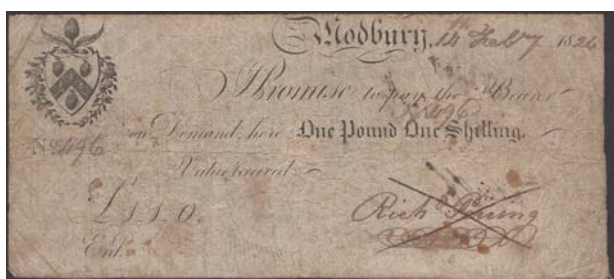 Modbury, 14th Feby 1826
I Promise to pay the Bearer
No 496
No 496 on Demand, here One Pound One Shilling.
Value received
£1.1.0.
Richd
Entd